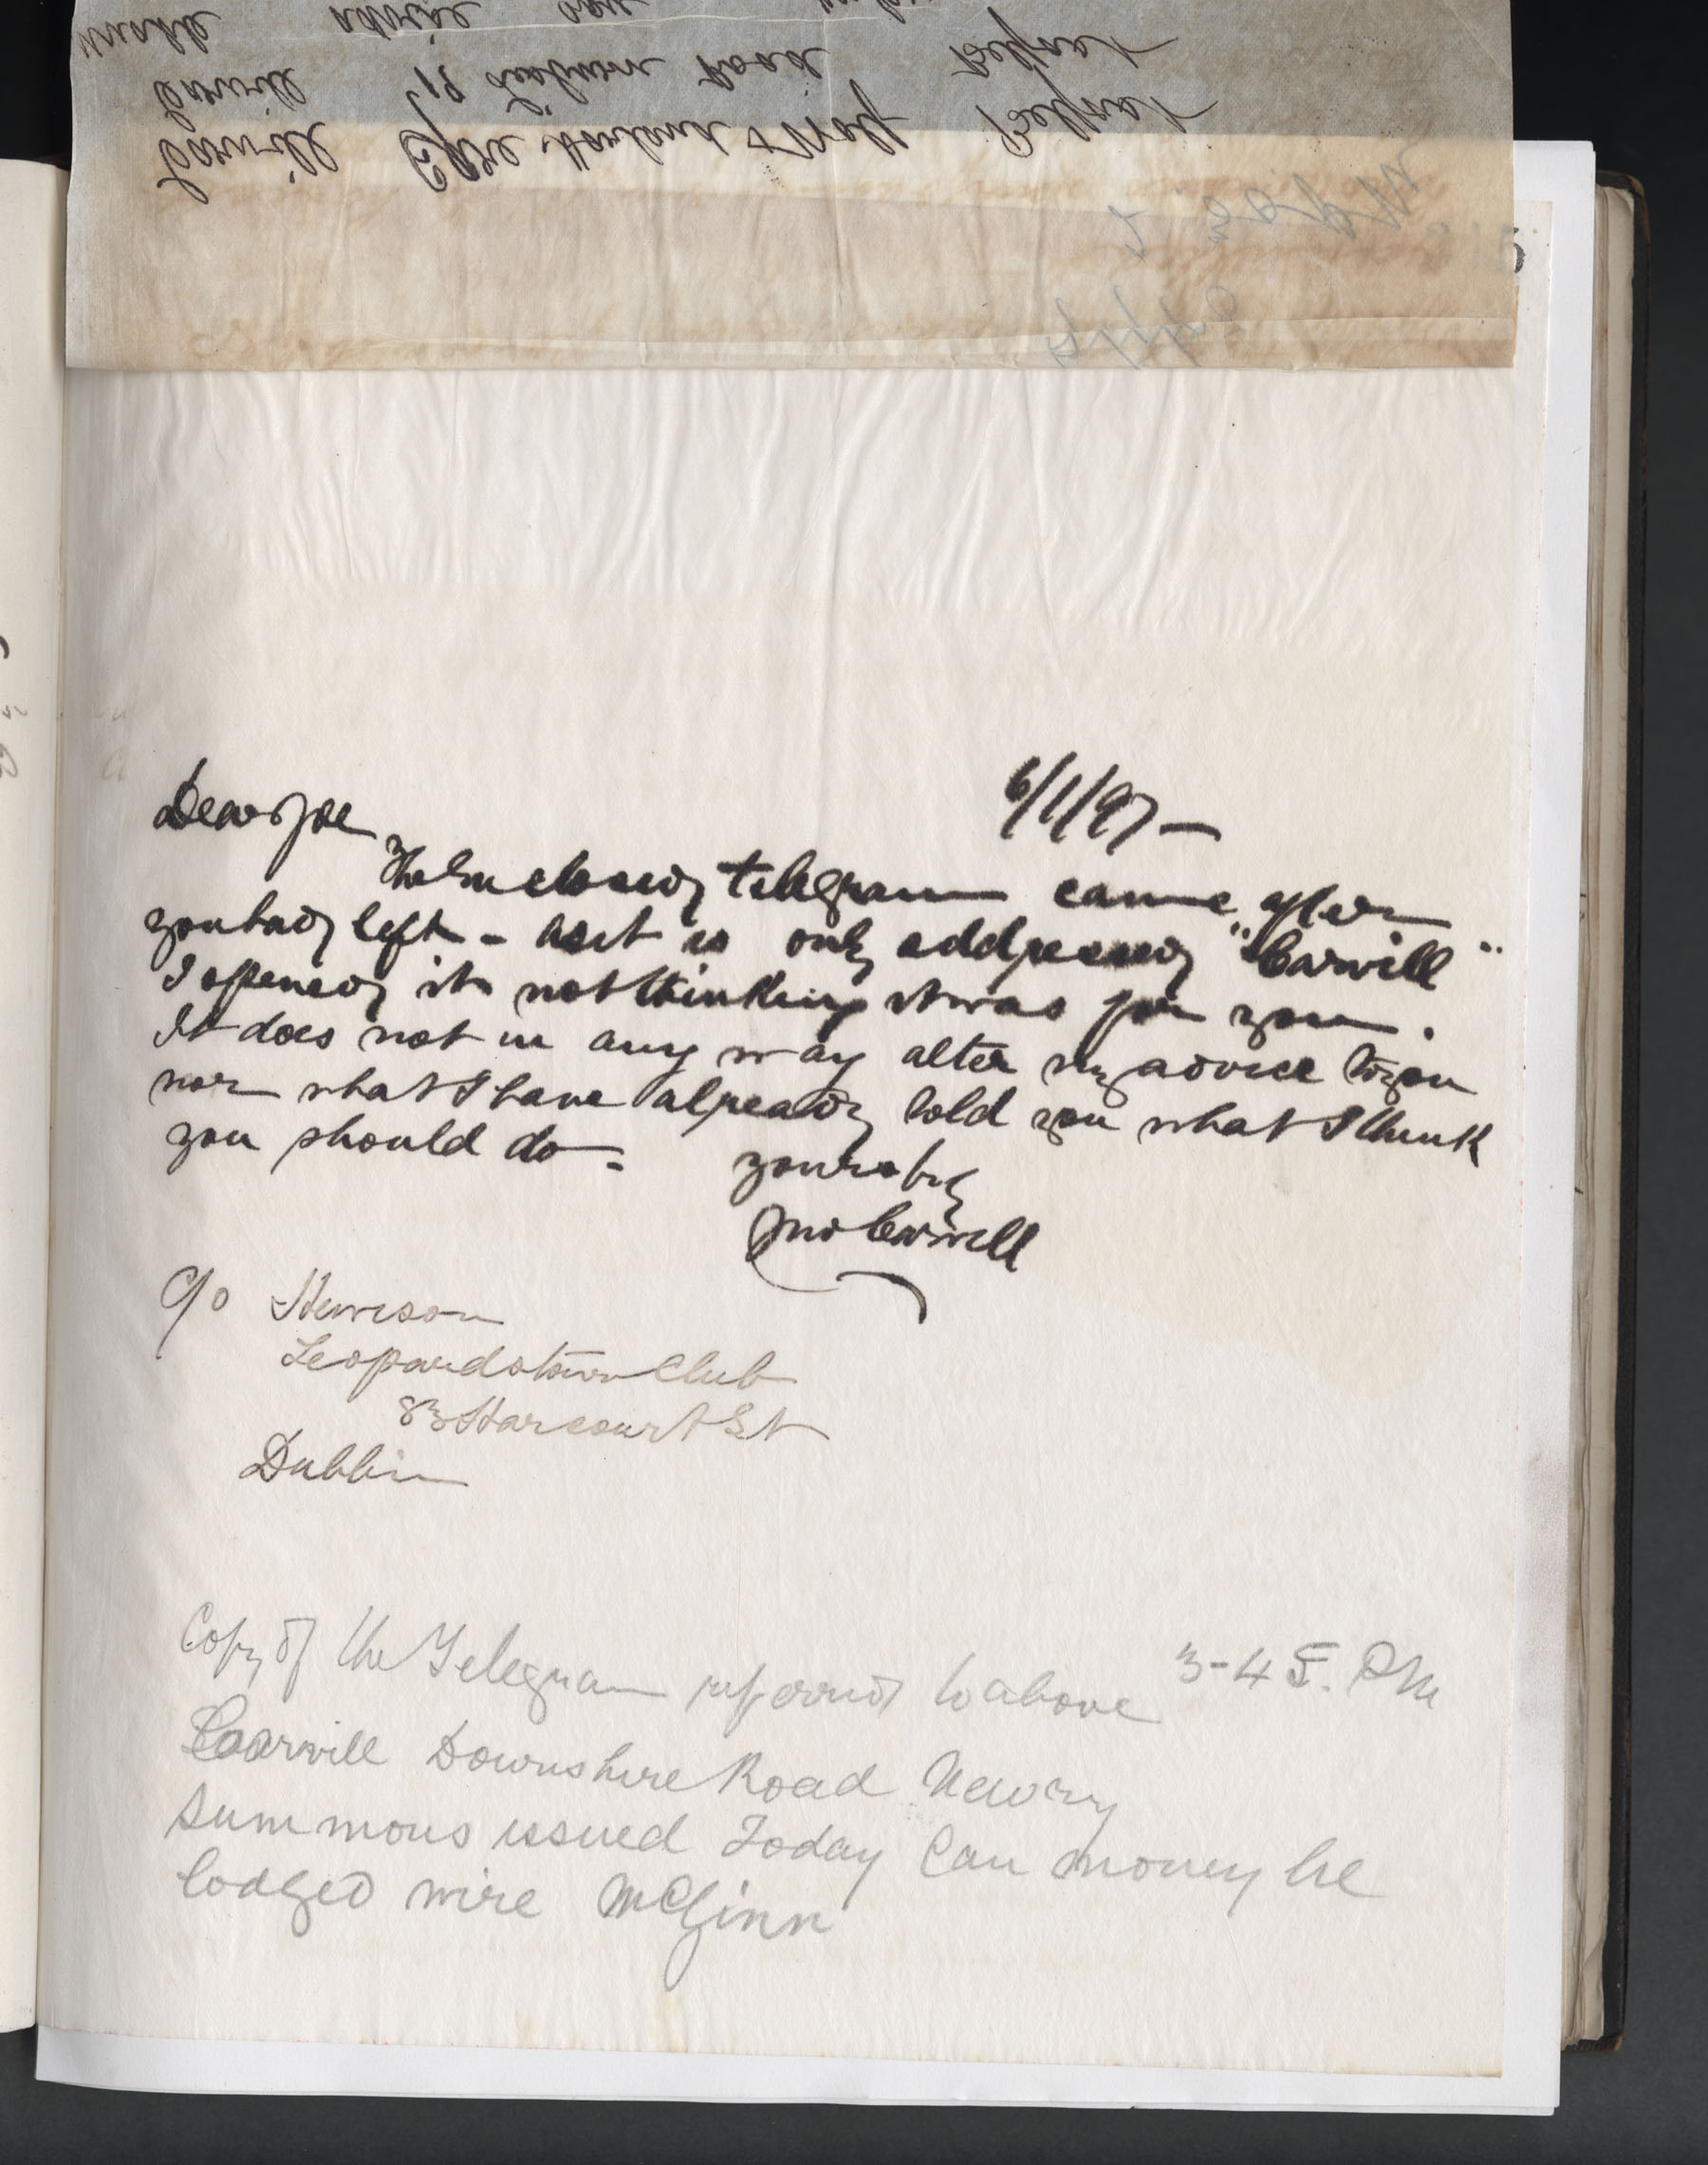 Carvill Care Harland & Wolf Belfast
Carvill 19 Lisburn Road Belfast
unable advise
6/1/97 —
Dear Joe
The Enclosed telegram came after
you had left - As it is only addressed "Carvill"
I opened it not thinking it was for you.
It does not in any way alter my advice to you
nor what I have already told you what I think
you should do -
yours try
Jno Carvill
C/o Hewison
Leopardstown Club
83 Harcourt St
Dublin
Copy of the Telegram referred to above 3-45. PM
Carvill Downshire Road Newry
Summons issued Today Can money be
lodged wire McGinn